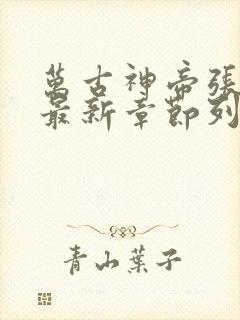 萬古神帝張
最新章節列
青山葉子